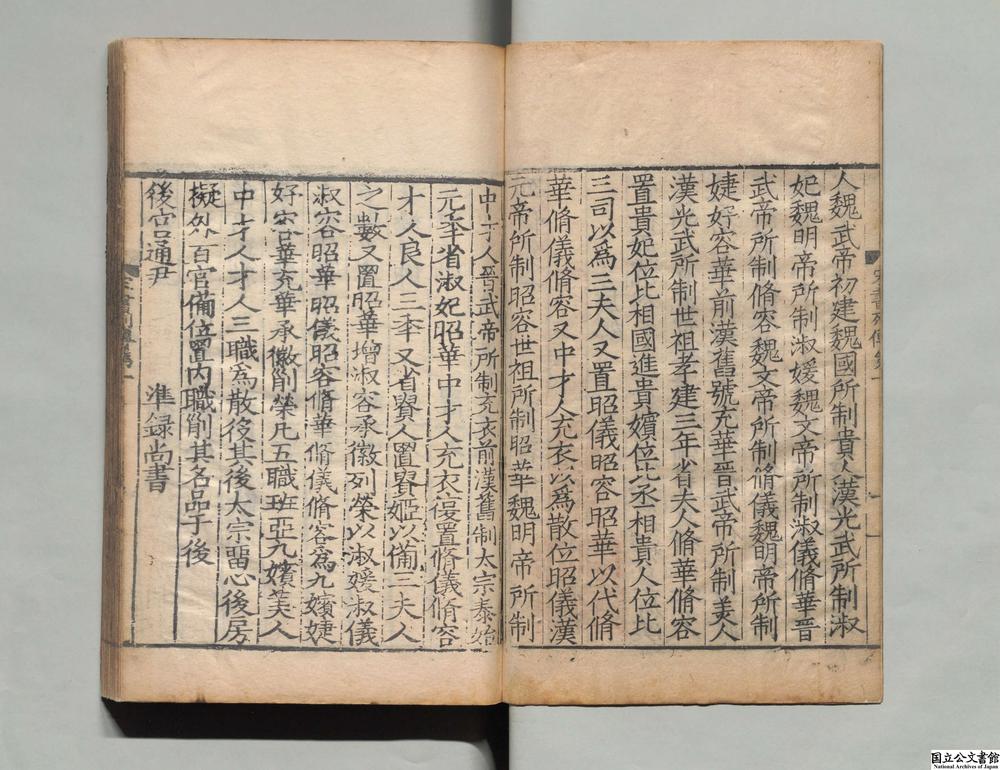 人魏武帝初建魏國所制貴人漢光武所制淑
妃魏明帝所制淑媛魏文帝所制淑儀脩華晉
武帝所制脩容魏文帝所制脩儀魏明帝所制
婕妤容華前漢舊號充華晉武帝所制美人
漢光武所制世祖孝建三年省夫人脩華脩容
置貴妃位比相國進貴嬪位比丞相貴人位比
三司以爲三夫人又置昭儀昭容昭華以代脩
華脩儀脩容又中才人充衣以爲散位昭儀漢
元帝所制昭容世祖所制昭華魏明帝所制
中才人晉武帝所制充衣前漢舊制太宗泰始
元年省淑妃昭華中才人充衣復置脩儀脩容
才人良人三年又省貴人置貴姬以備三夫人
之數又置昭華增淑容承徽列榮以淑媛淑儀
淑容昭華昭儀昭容脩華脩儀脩容爲九嬪婕
妤容華充華承徽列榮凡五職班亞九嬪美人
中才人才人三職爲散役其後太宗留心後房
擬外百官備位置內職列其名品于後
後宮通尹 準錄尚書
宋書列傳第一
国立公文書館
National Archives of Japan